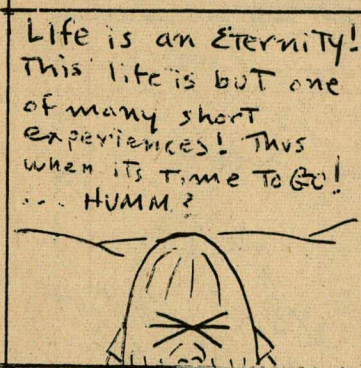 Life is an ETERNITY!
This life is but one
of many short
experiences! Thus
when its Time To GO!
... HUMM?